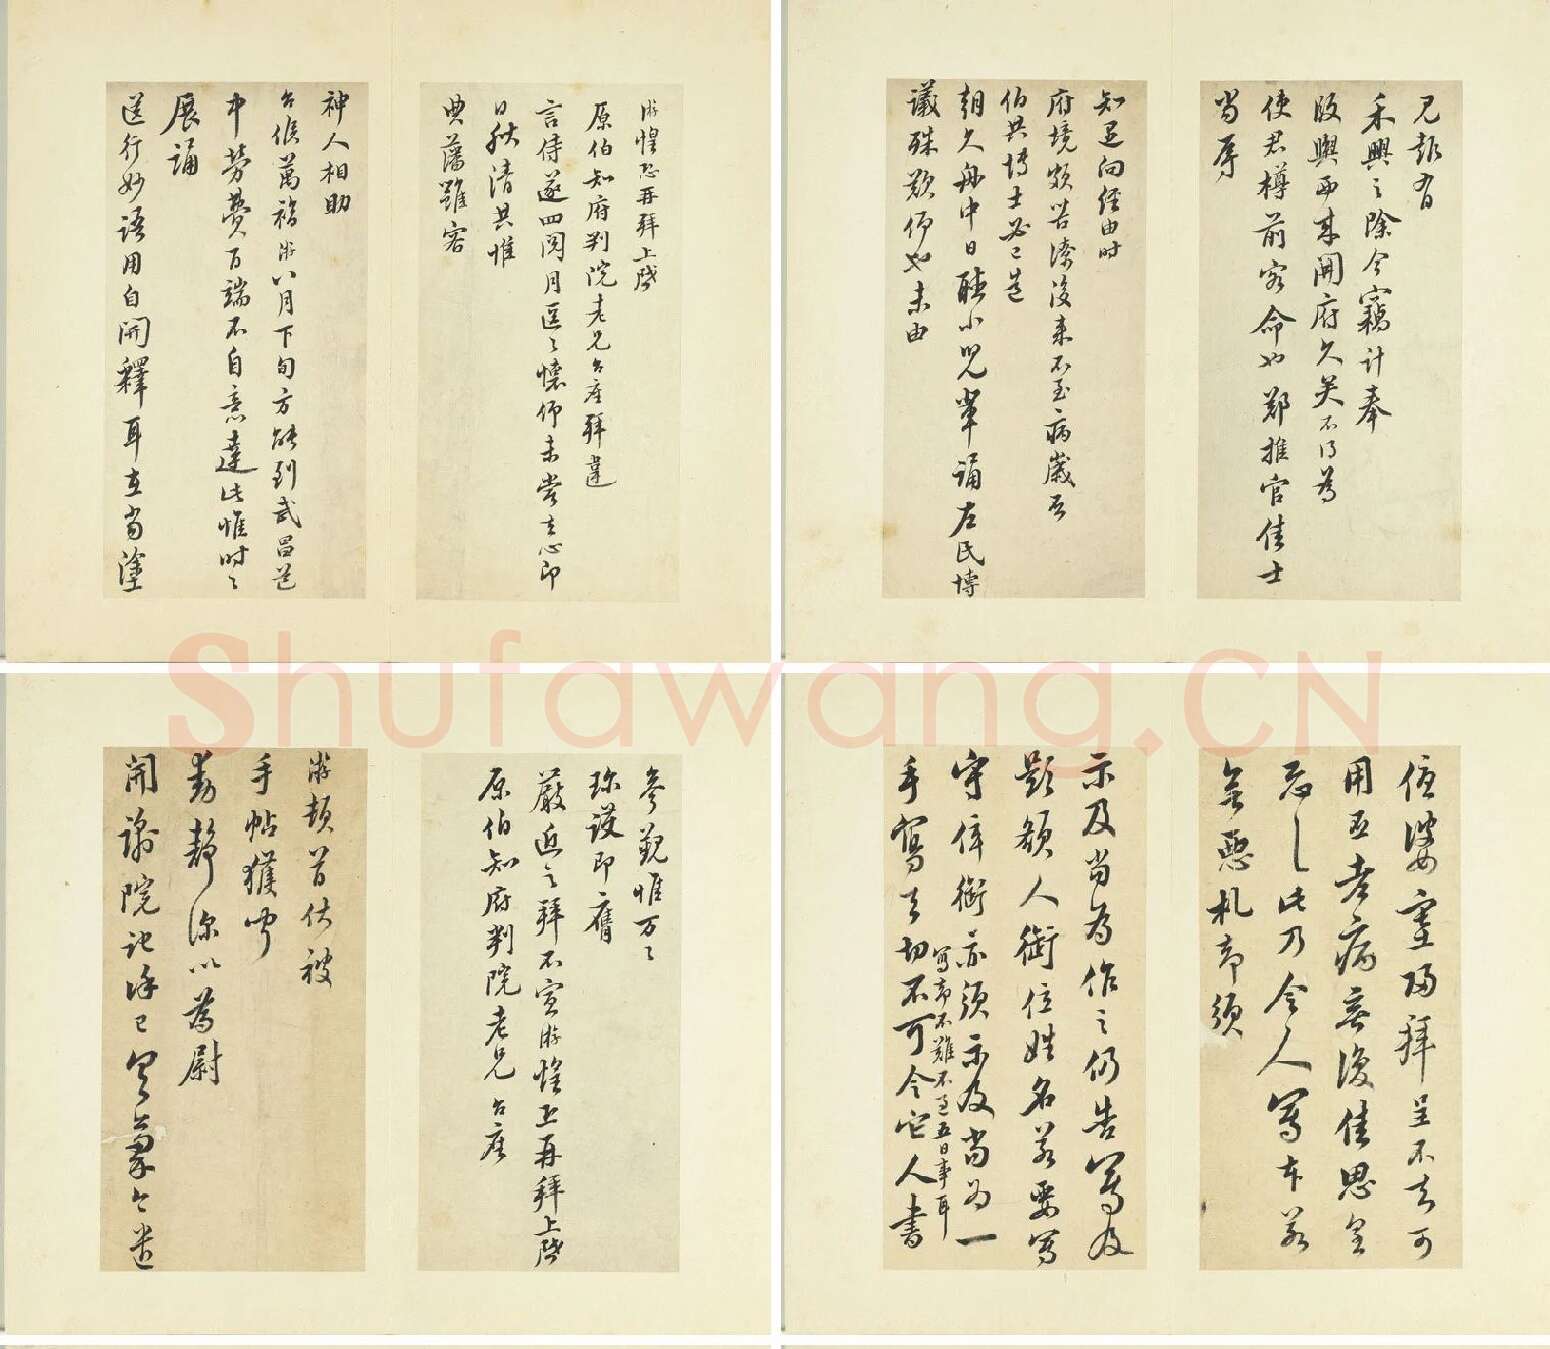 游惶恐再拜上啓
原伯知府判院老兄台座拜違
言侍遂四閱月區々懷仰未嘗去心即
日秋清共惟
典藩雖容
神人相助
台候萬福游八月下旬方能到武昌道
中勞費百端不自意達此惟時々
展誦
送行妙語用自開釋耳在當塗
見報有
禾興之除今竊計奉
版輿西來開府久矣不得為
使君樽前客命也鄭推官佳士
當辱
知遇向經由時
府境頗苦潦後來不至病歲否
伯共博士必已造
朝久舟中日聽小兒輩誦左氏博
議殊歎仰也未由
參覲惟万々
珍護即膺
嚴近之拜不宣游惶恐再拜上啓
原伯知府判院老兄台座
游頓首伏被
手帖獲聞
動靜深以為慰
開諭院記詳已具稾今遂
用亟老病無復佳思皇
恐々此乃令人寫本若
無惡札即須
示及當為作之仍告寫及
題額人銜位姓名若要寫
守倅銜亦須示及當為一
手寫去切不可令它人書
寫即不難不過五日事耳
Shufawang.CN